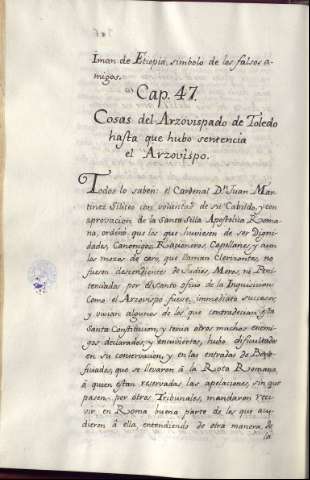 Iman de Etiopia, simbolo de los falsos a-
migos.
Cap. 47.
Cosas del Arzovispado de Toledo
hasta que hubo sentencia
el Arzovispo.
Todos lo saben: el Cardenal Dn. Juan Mar-
tinez Siliceo con voluntad de su Cabildo, y con
aprovacion de la Santa Silla Apostolica Roma-
na, ordenó, que los que huviesen de ser Digni-
dades, Canonigos Racioneros, Capellanes, y aun
los mozos de coro, que llaman Clerizontes, no
fuesen descendientes de Judios, Moros, ni Peni-
tenciados por el Santo oficio de la Inquisicion.
Como el Arzovispo fuese, immediato succesor,
y que algunos de los que contradecian esta
Santa Constitucion, y tenia otros muchos enemi-
gos declarados, y encuviertos, hubo dificultades
en su conservacion, y en las entradas de Bene-
ficiados, que se llevaron á la Rota Romana,
á quien estan reservadas las apelaciones, sin que
pasen por otros Tribunales, mandaron reci-
vir en Roma buena parte de los que acu-
dieron á ella, entendiendo de otra manera, de
la